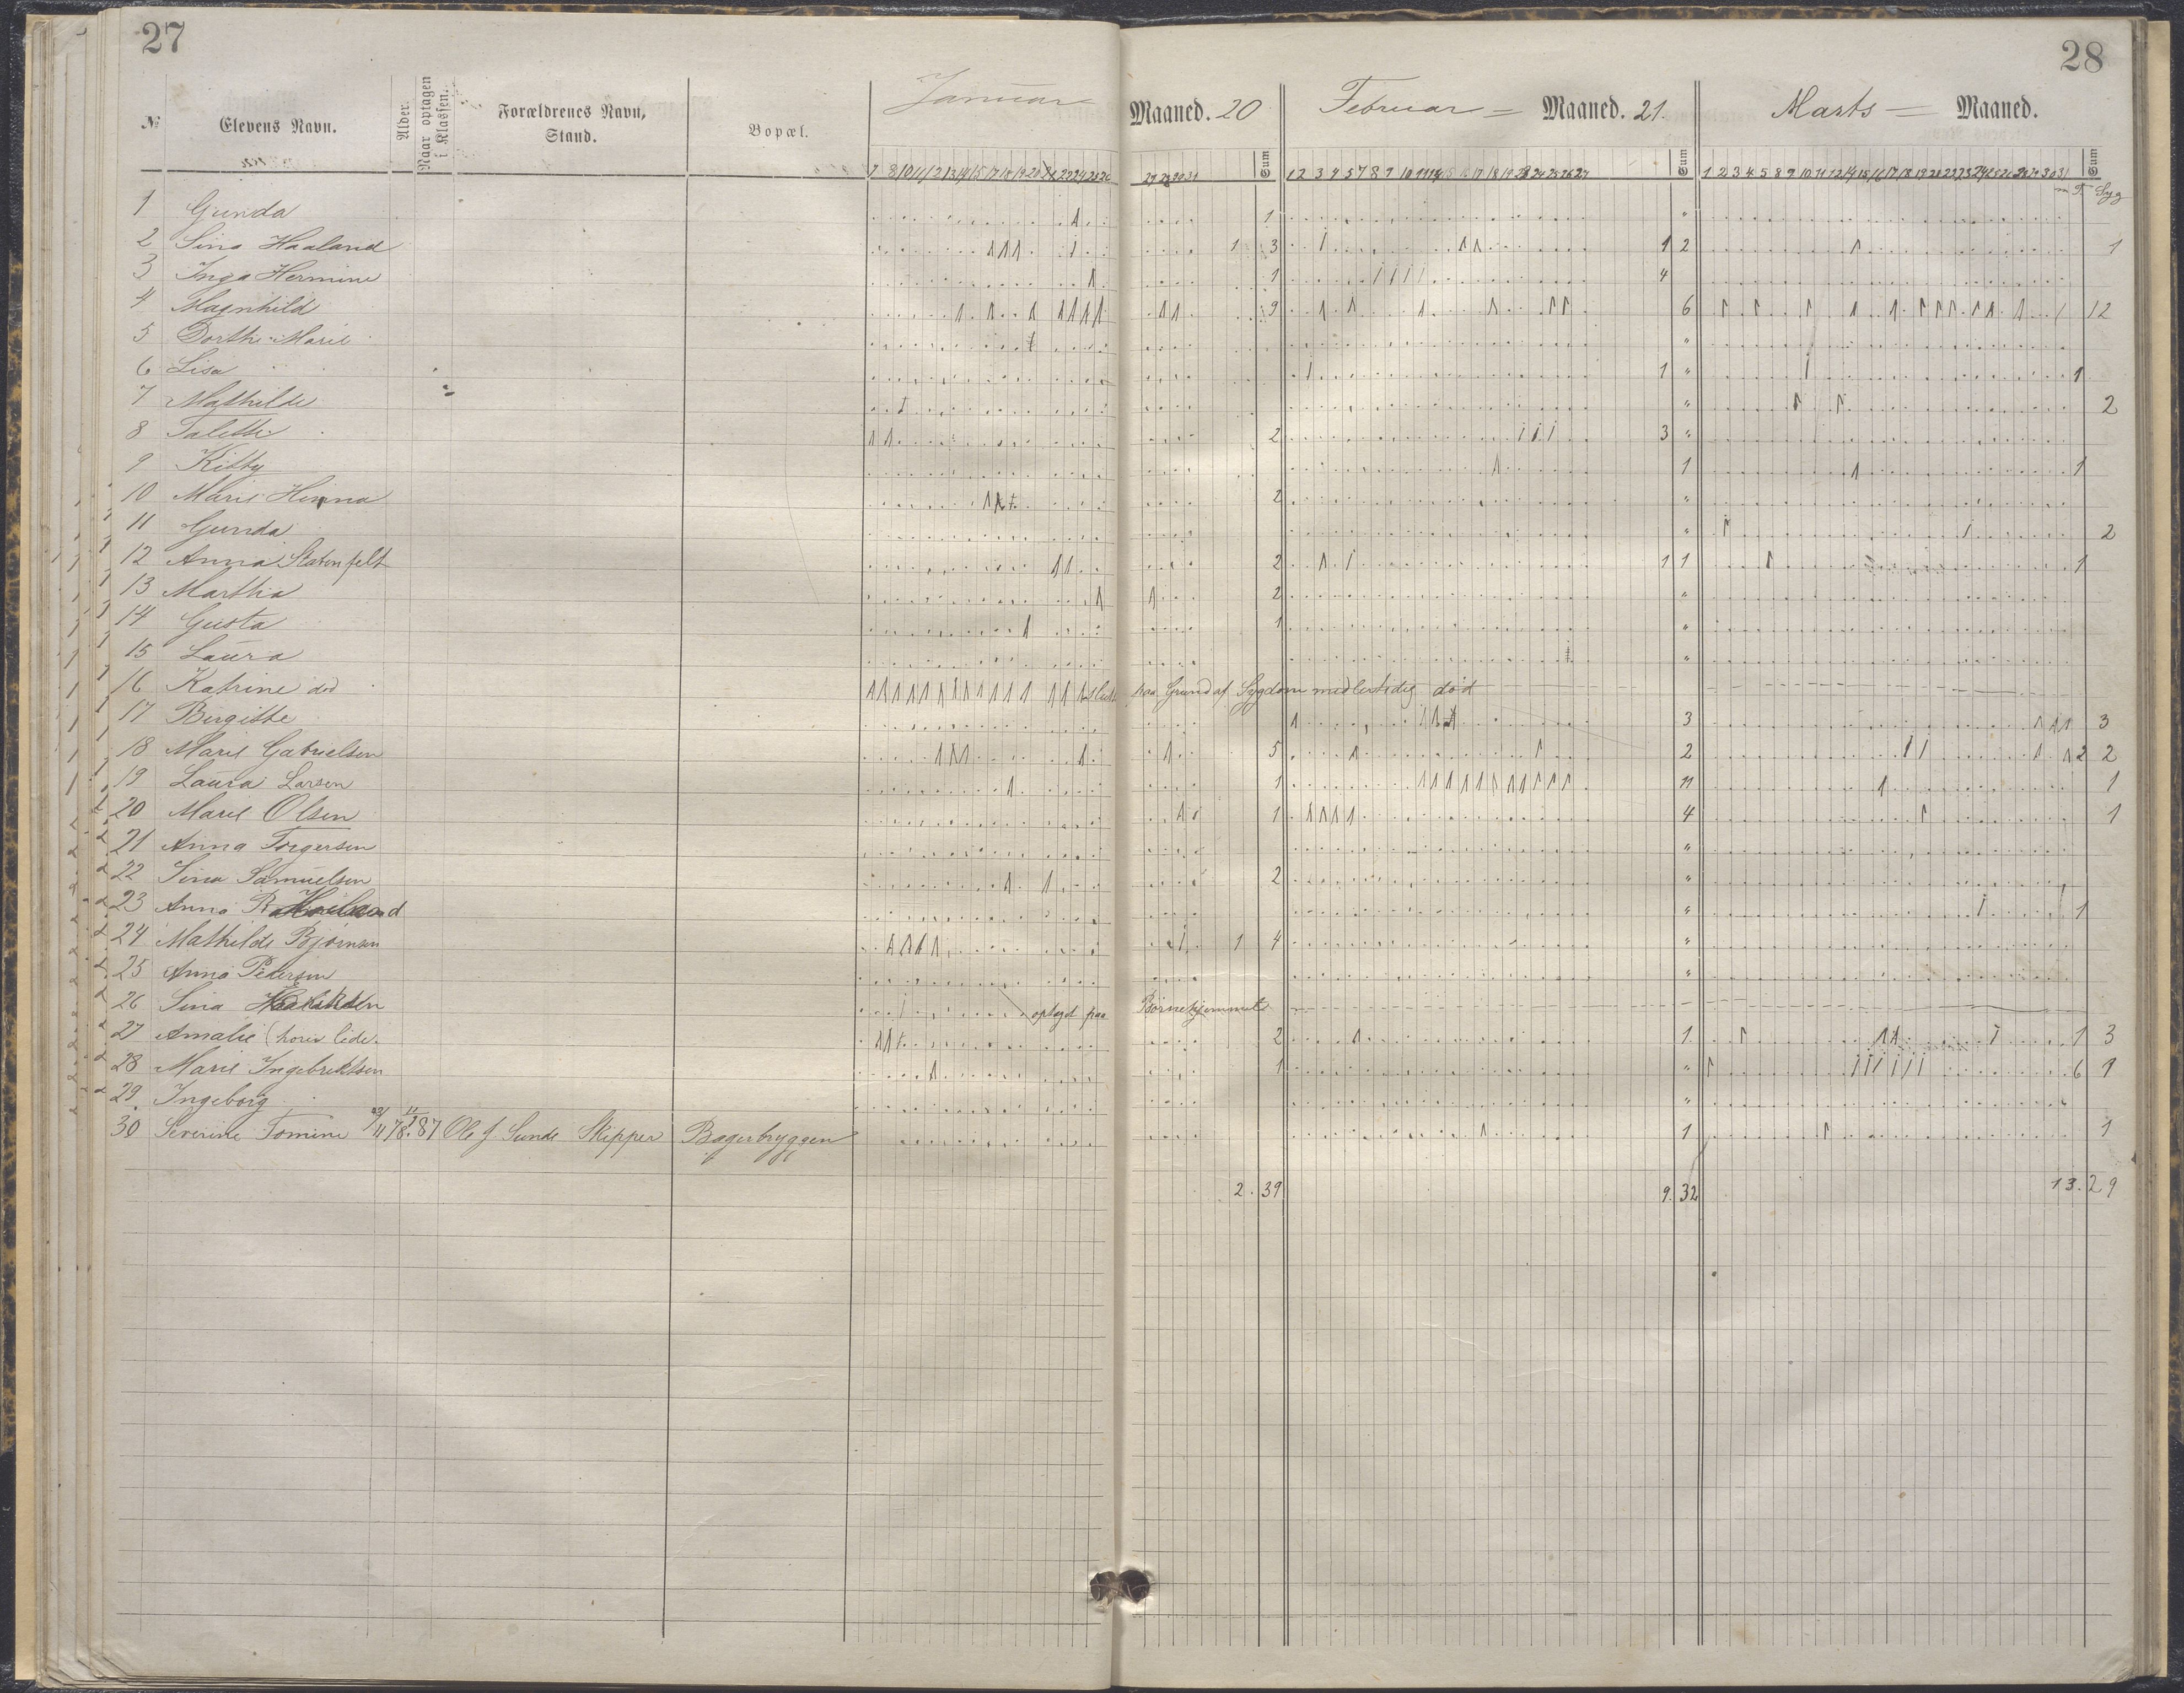 27
28
№ Elevens Navn. Alder. Naar optagen i Klassen. Forældrenes Navn, Stand. Bopæl. Januar Maaned. 20 Februar = Maaned. 21. Marts — Maaned.
Sum Sum Sum
m F Syg
1 Gunda 1 "
2 Sina Haaland 1 3 1 2 1
3 Inga Hermine 1 4
4 Magnhild 9 6 12
5 Dorthe Marie "
6 Lisa 1 " 1
7 Mathilde " 2
8 Talette 2 3 "
9 Kitty 1 1
10 Marie Hinna 2 "
11 Gunda " 2
12 Anna Statenfelt 2 1 1 1
13 Marthia 2 "
14 Gusta 1 "
15 Laura "
16 Katrine død paa Grund af Sygdom midlertidig død
17 Birgitte 3 3
18 Marie Gabrielsen 5 2 2 2
19 Laura Larsen 1 11 1
20 Marie Olsen 1 4 1
21 Anna Torgersen "
22 Sina Samuelsen 2 "
23 Anna " 1
24 Mathilde Bjørnsen 1 4 "
25 Anna Pedersen "
26 Sina optagt paa Børnehjemmet
27 Amalie 2 1 1 3
28 Marie Ingebrektsen 1 " 6 1
29 Ingeborg "
30 Severine Tomine 23/4 78. 87 Ole J. Sunde Skipper Bagerbryggen 1 1
2. 39 9. 32 13. 29